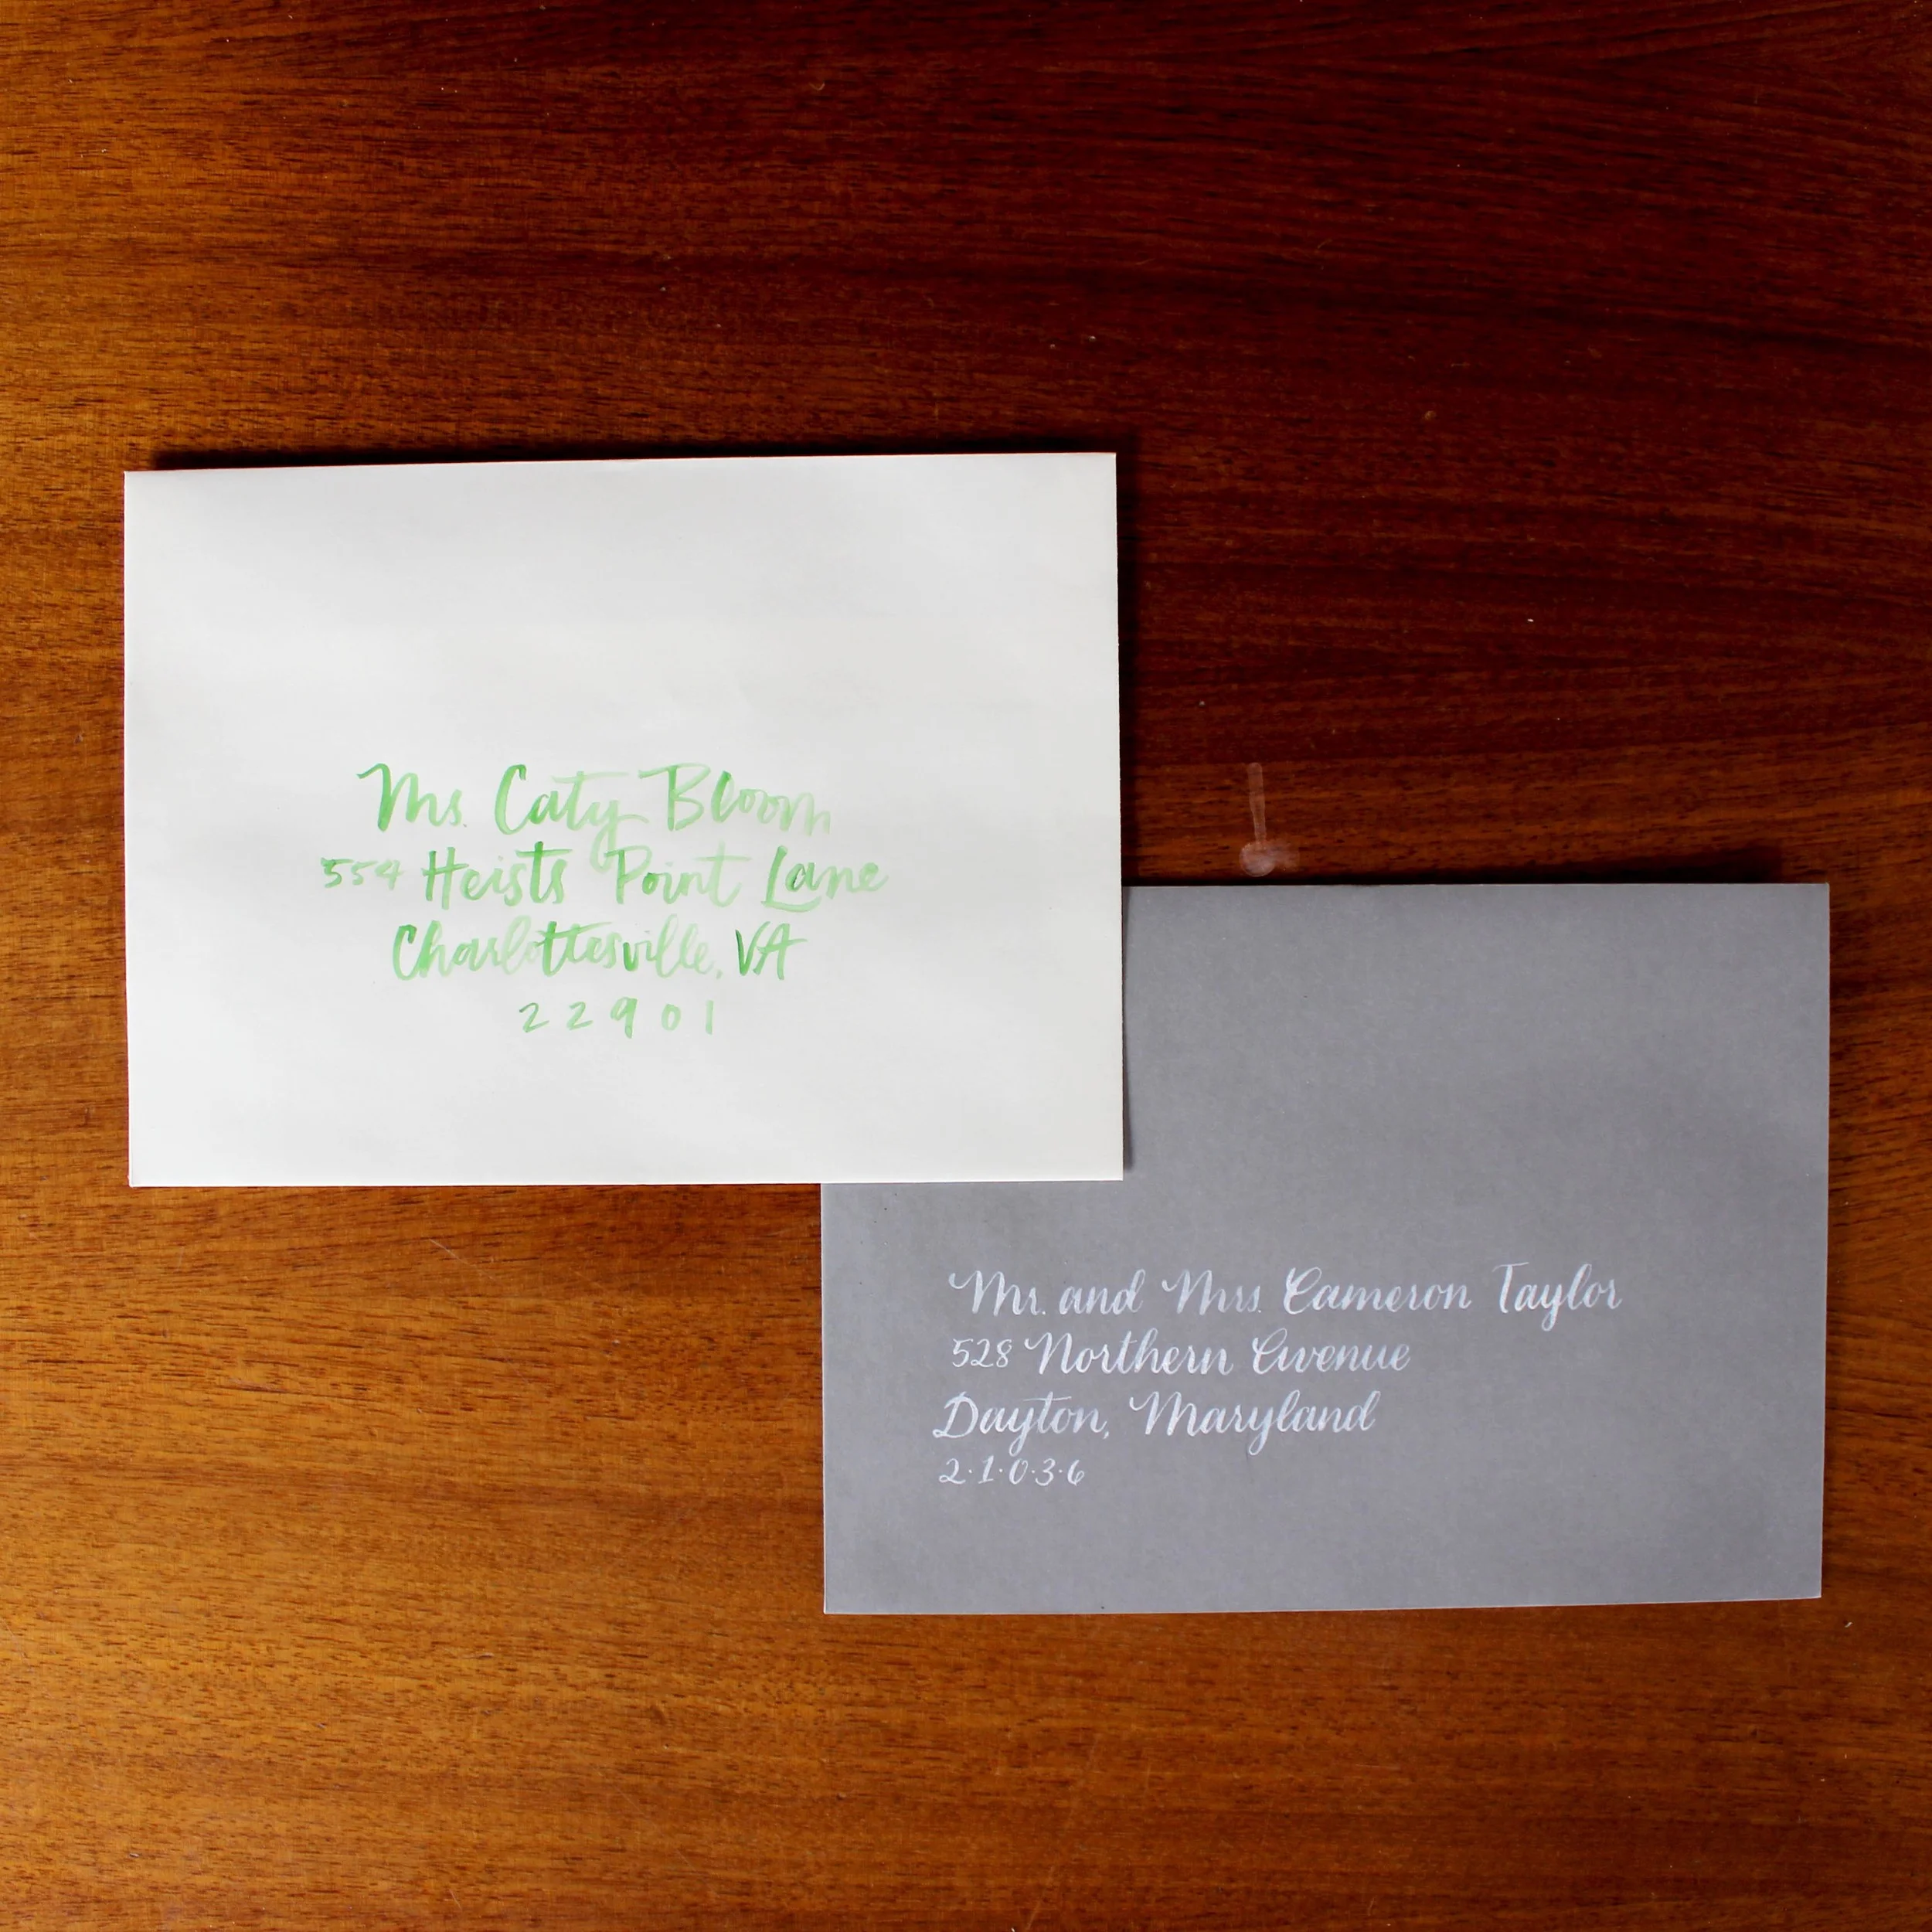 Ms. Caty Bloom
554 Heists Point Lane
Charlottesville, VA
22901
Mr. and Mrs. Cameron Taylor
528 Northern Avenue
Dayton, Maryland
2·1·0·3·6